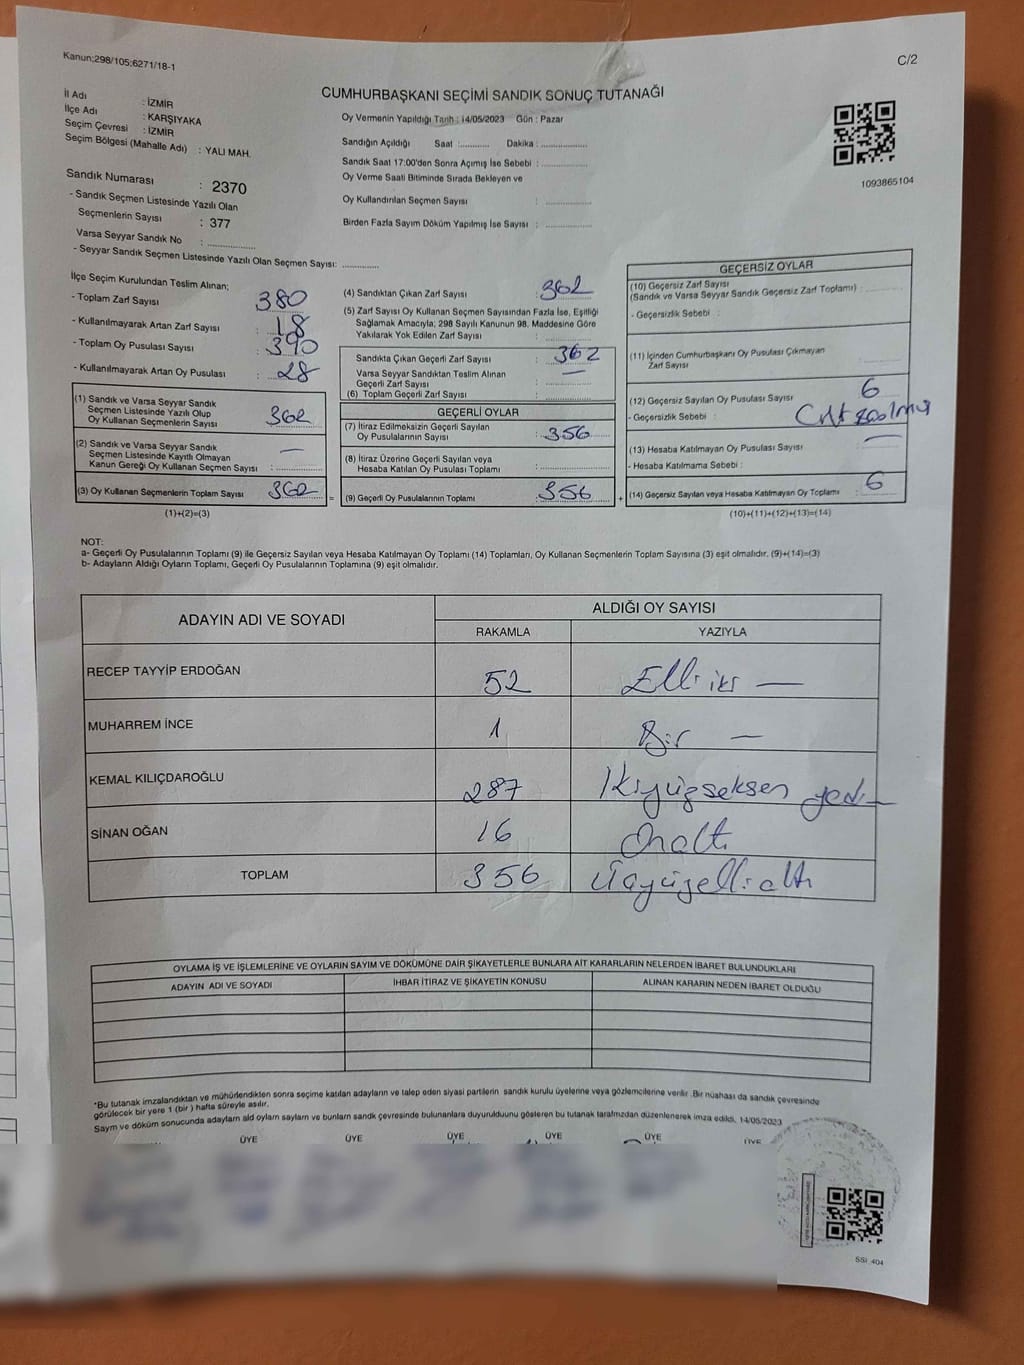 Kanun:298/105;6271/18-1
C/2
CUMHURBAŞKANI SEÇİMİ SANDIK SONUÇ TUTANAĞI
İl Adı : İZMİR
İlçe Adı : KARŞIYAKA
Seçim Çevresi : İZMİR
Seçim Bölgesi (Mahalle Adı) : YALI MAH.
Sandık Numarası : 2370
- Sandık Seçmen Listesinde Yazılı Olan
Seçmenlerin Sayısı : 377
Varsa Seyyar Sandık No : ...............
- Seyyar Sandık Seçmen Listesinde Yazılı Olan Seçmen Sayısı: ............
Oy Vermenin Yapıldığı Tarih : 14/05/2023 Gün : Pazar
Sandığın Açıldığı Saat :.......... Dakika : ...............
Sandık Saat 17:00'den Sonra Açımış İse Sebebi : ...............
Oy Verme Saati Bitiminde Sırada Bekleyen ve
Oy Kullandırılan Seçmen Sayısı : ...............
Birden Fazla Sayım Döküm Yapılmış İse Sayısı : ...............
1093865104
İlçe Seçim Kurulundan Teslim Alınan;
- Toplam Zarf Sayısı : 380
- Kullanılmayarak Artan Zarf Sayısı : 18
- Toplam Oy Pusulası Sayısı : 390
- Kullanılmayarak Artan Oy Pusulası : 28
(1) Sandık ve Varsa Seyyar Sandık
Seçmen Listesinde Yazılı Olup
Oy Kullanan Seçmenlerin Sayısı : 362
(2) Sandık ve Varsa Seyyar Sandık
Seçmen Listesinde Kayıtlı Olmayan
Kanun Gereği Oy Kullanan Seçmen Sayısı : —
(3) Oy Kullanan Seçmenlerin Toplam Sayısı : 362
(1)+(2)=(3)
(4) Sandıktan Çıkan Zarf Sayısı : 362
(5) Zarf Sayısı Oy Kullanan Seçmen Sayısından Fazla İse, Eşitliği
Sağlamak Amacıyla; 298 Sayılı Kanunun 98. Maddesine Göre
Yakılarak Yok Edilen Zarf Sayısı : ...............
Sandıkta Çıkan Geçerli Zarf Sayısı : 362
Varsa Seyyar Sandıktan Teslim Alınan
Geçerli Zarf Sayısı : —
(6) Toplam Geçerli Zarf Sayısı : ...............
GEÇERLİ OYLAR
(7) İtiraz Edilmeksizin Geçerli Sayılan
Oy Pusulalarının Sayısı : 356
(8) İtiraz Üzerine Geçerli Sayılan veya
Hesaba Katılan Oy Pusulası Toplamı : ...............
= (9) Geçerli Oy Pusulalarının Toplamı : 356 +
GEÇERSİZ OYLAR
(10) Geçersiz Zarf Sayısı
(Sandık ve Varsa Seyyar Sandık Geçersiz Zarf Toplamı) : ...............
- Geçersizlik Sebebi :
(11) İçinden Cumhurbaşkanı Oy Pusulası Çıkmayan
Zarf Sayısı : ...............
(12) Geçersiz Sayılan Oy Pusulası Sayısı : 6
- Geçersizlik Sebebi :
(13) Hesaba Katılmayan Oy Pusulası Sayısı : —
- Hesaba Katılmama Sebebi :
(14) Geçersiz Sayılan veya Hesaba Katılmayan Oy Toplamı : 6
(10)+(11)+(12)+(13)=(14)
NOT:
a- Geçerli Oy Pusulalarının Toplamı (9) ile Geçersiz Sayılan veya Hesaba Katılmayan Oy Toplamı (14) Toplamları, Oy Kullanan Seçmenlerin Toplam Sayısına (3) eşit olmalıdır. (9)+(14)=(3)
b- Adayların Aldığı Oyların Toplamı, Geçerli Oy Pusulalarının Toplamına (9) eşit olmalıdır.
ADAYIN ADI VE SOYADI
ALDIĞI OY SAYISI
RAKAMLA YAZIYLA
RECEP TAYYİP ERDOĞAN 52 Elli iki —
MUHARREM İNCE 1 Bir —
KEMAL KILIÇDAROĞLU 287 İkiyüzseksen yedi —
SİNAN OĞAN 16 Onaltı
TOPLAM 356 Üçyüzelli altı
OYLAMA İŞ VE İŞLEMLERİNE VE OYLARIN SAYIM VE DÖKÜMÜNE DAİR ŞİKAYETLERLE BUNLARA AİT KARARLARIN NELERDEN İBARET BULUNDUKLARI
ADAYIN ADI VE SOYADI İHBAR İTİRAZ VE ŞİKAYETİN KONUSU ALINAN KARARIN NEDEN İBARET OLDUĞU
*Bu tutanak imzalandıktan ve mühürlendikten sonra seçime katılan adayların ve talep eden siyasi partilerin sandık kurulu üyelerine veya gözlemcilerine verilir .Bir nüshası da sandık çevresinde
görülecek bir yere 1 (bir ) hafta süreyle asılır.
Sayım ve döküm sonucunda adayların ald oyların sayların ve bunların sandk çevresinde bulunanlara duyurulduunu gösteren bu tutanak tarafmzdan düzenlenerek imza edildi. 14/05/2023
ÜYE ÜYE ÜYE ÜYE ÜYE ÜYE
SSI_404